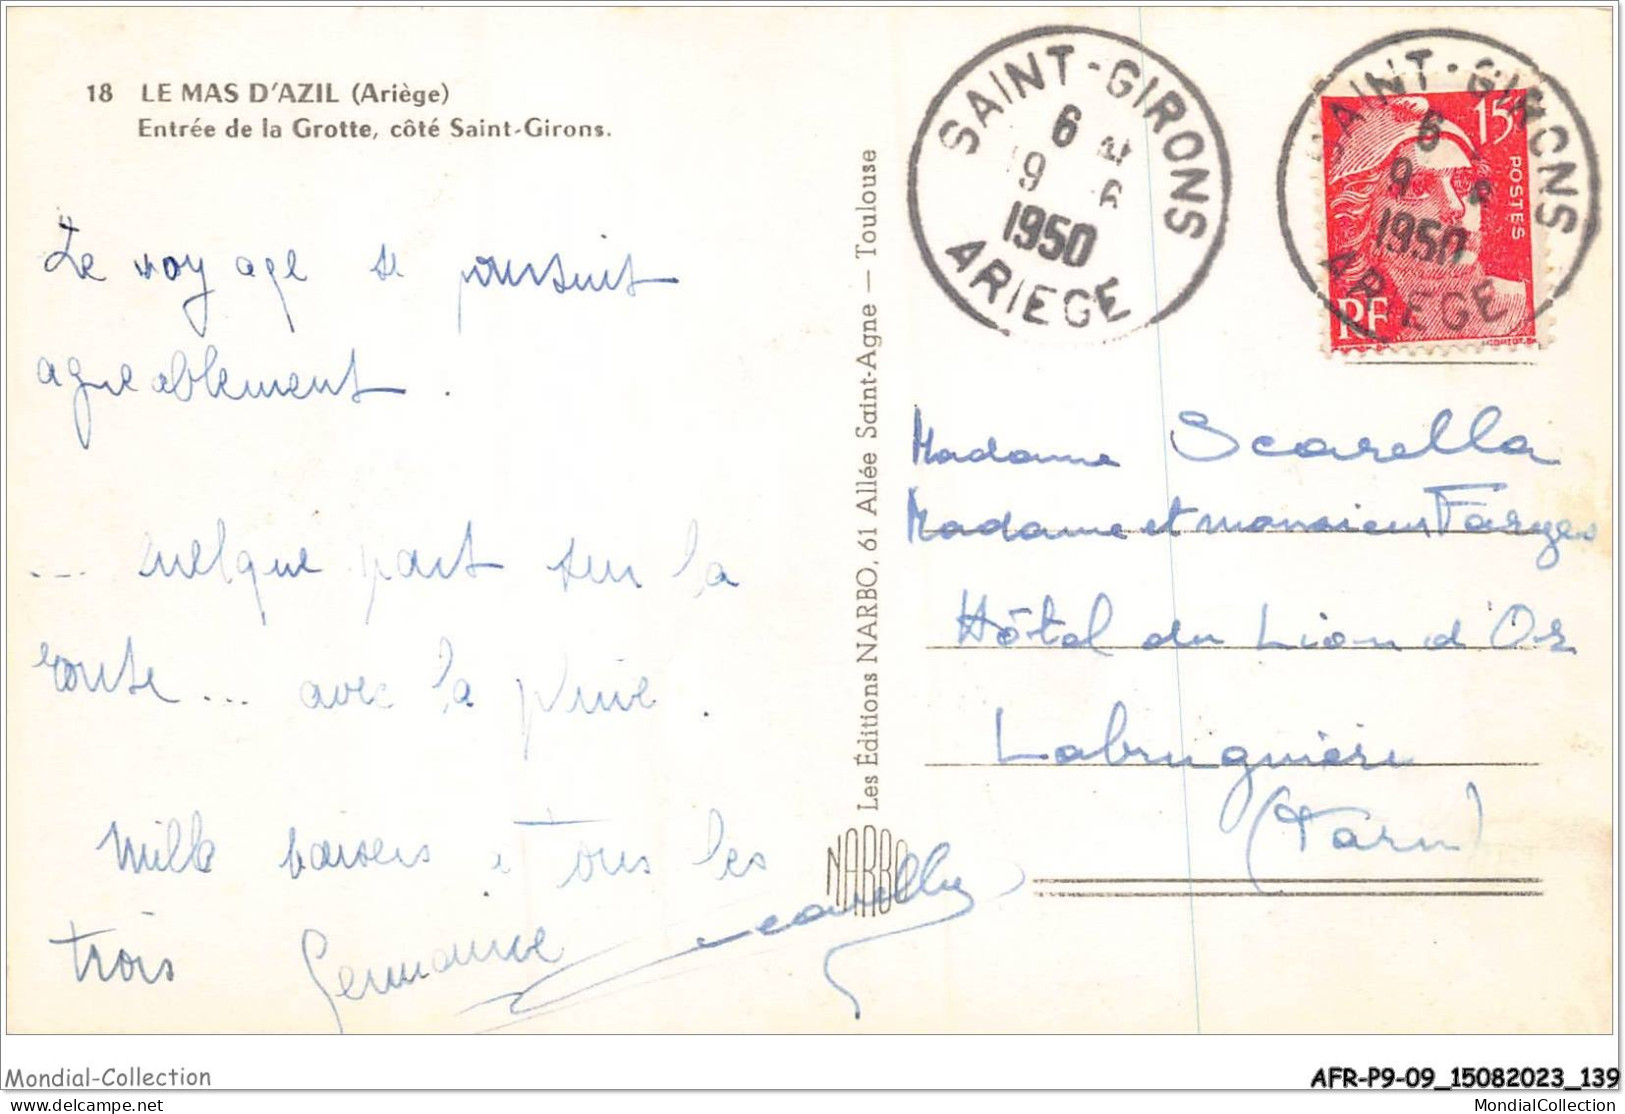 18 LE MAS D'AZIL (Ariège)
Entrée de la Grotte, côté Saint-Girons.
Le voyage se poursuit
agréablement.
... quelque part sur la
route... avec la pluie.
Mille baisers à tous les
trois Germaine Scarella
Les Éditions NARBO, 61 Allée Saint-Agne — Toulouse
NARBO
SAINT-GIRONS
6
9 6
1950
ARIEGE
SAINT-GIRONS
6
9 6
1950
ARIEGE
15F
POSTES
RF
Madame Scarella
Madame et monsieur Farges
Hôtel du Lion d'Or
Labruguière
(Tarn)
Mondial-Collection
AFR-P9-09_15082023_139
mondialcollection.net
MondialCollection